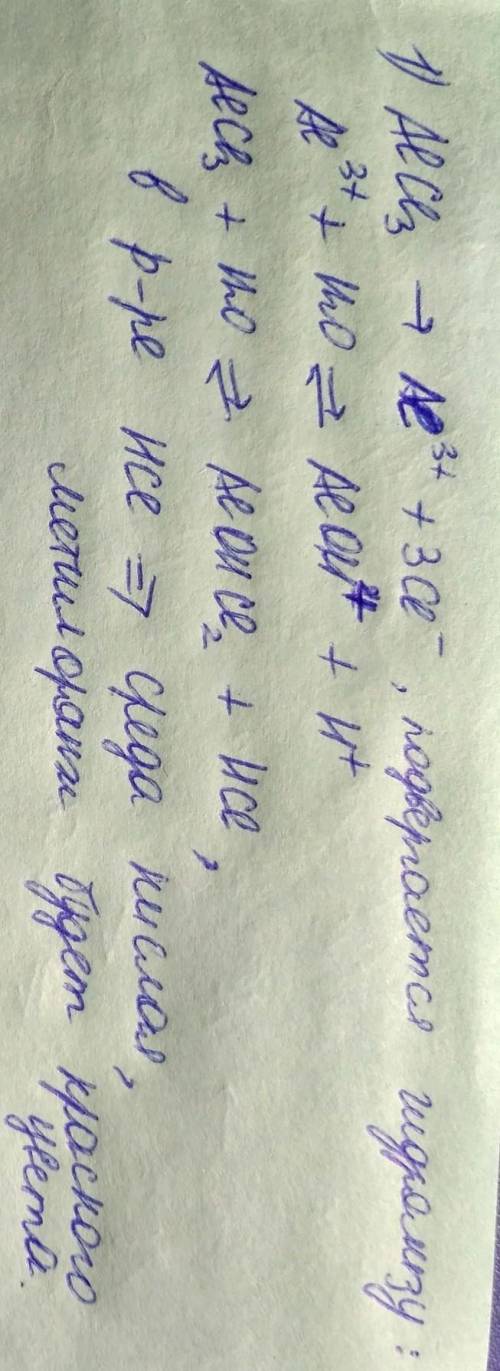 1) AlCl₃ → Al³⁺ + 3Cl⁻, подвергается гидролизу:
Al³⁺ + HHO ⇌ AlOH²⁺ + H⁺
AlCl₃ + HHO ⇌ AlOHCl₂ + HCl,
в р-ре HCl ⇒ среда кислая,
метилоранж будет красного
цвета.